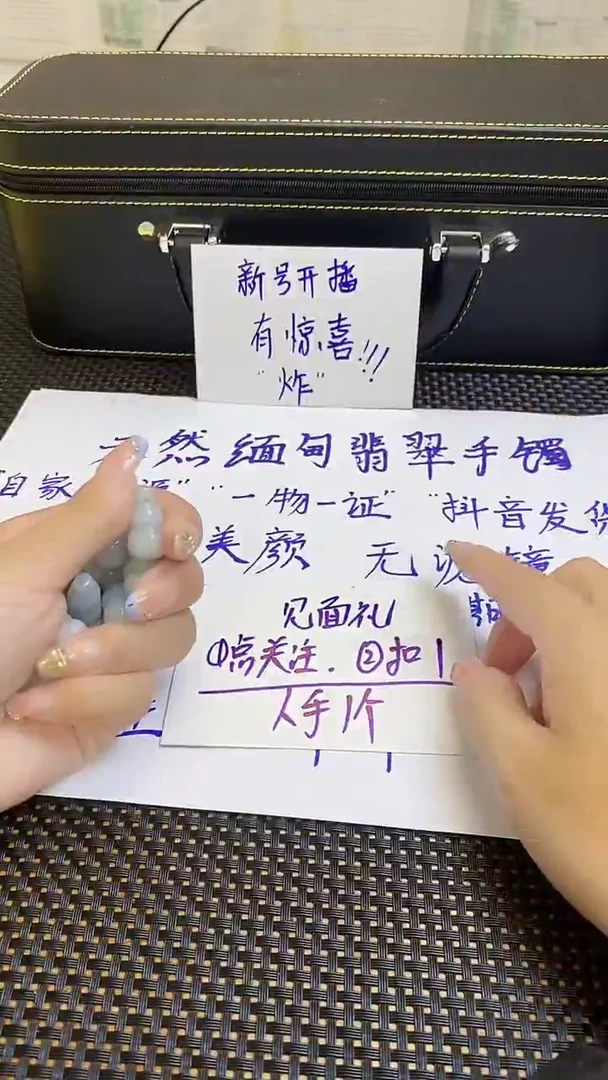 新号开播
有惊喜!!!
"炸"
然缅甸翡翠手镯
"自家 "一物一证" "抖音发
美颜 无滤镜
见面礼
①点关注. ②扣1
人手1个